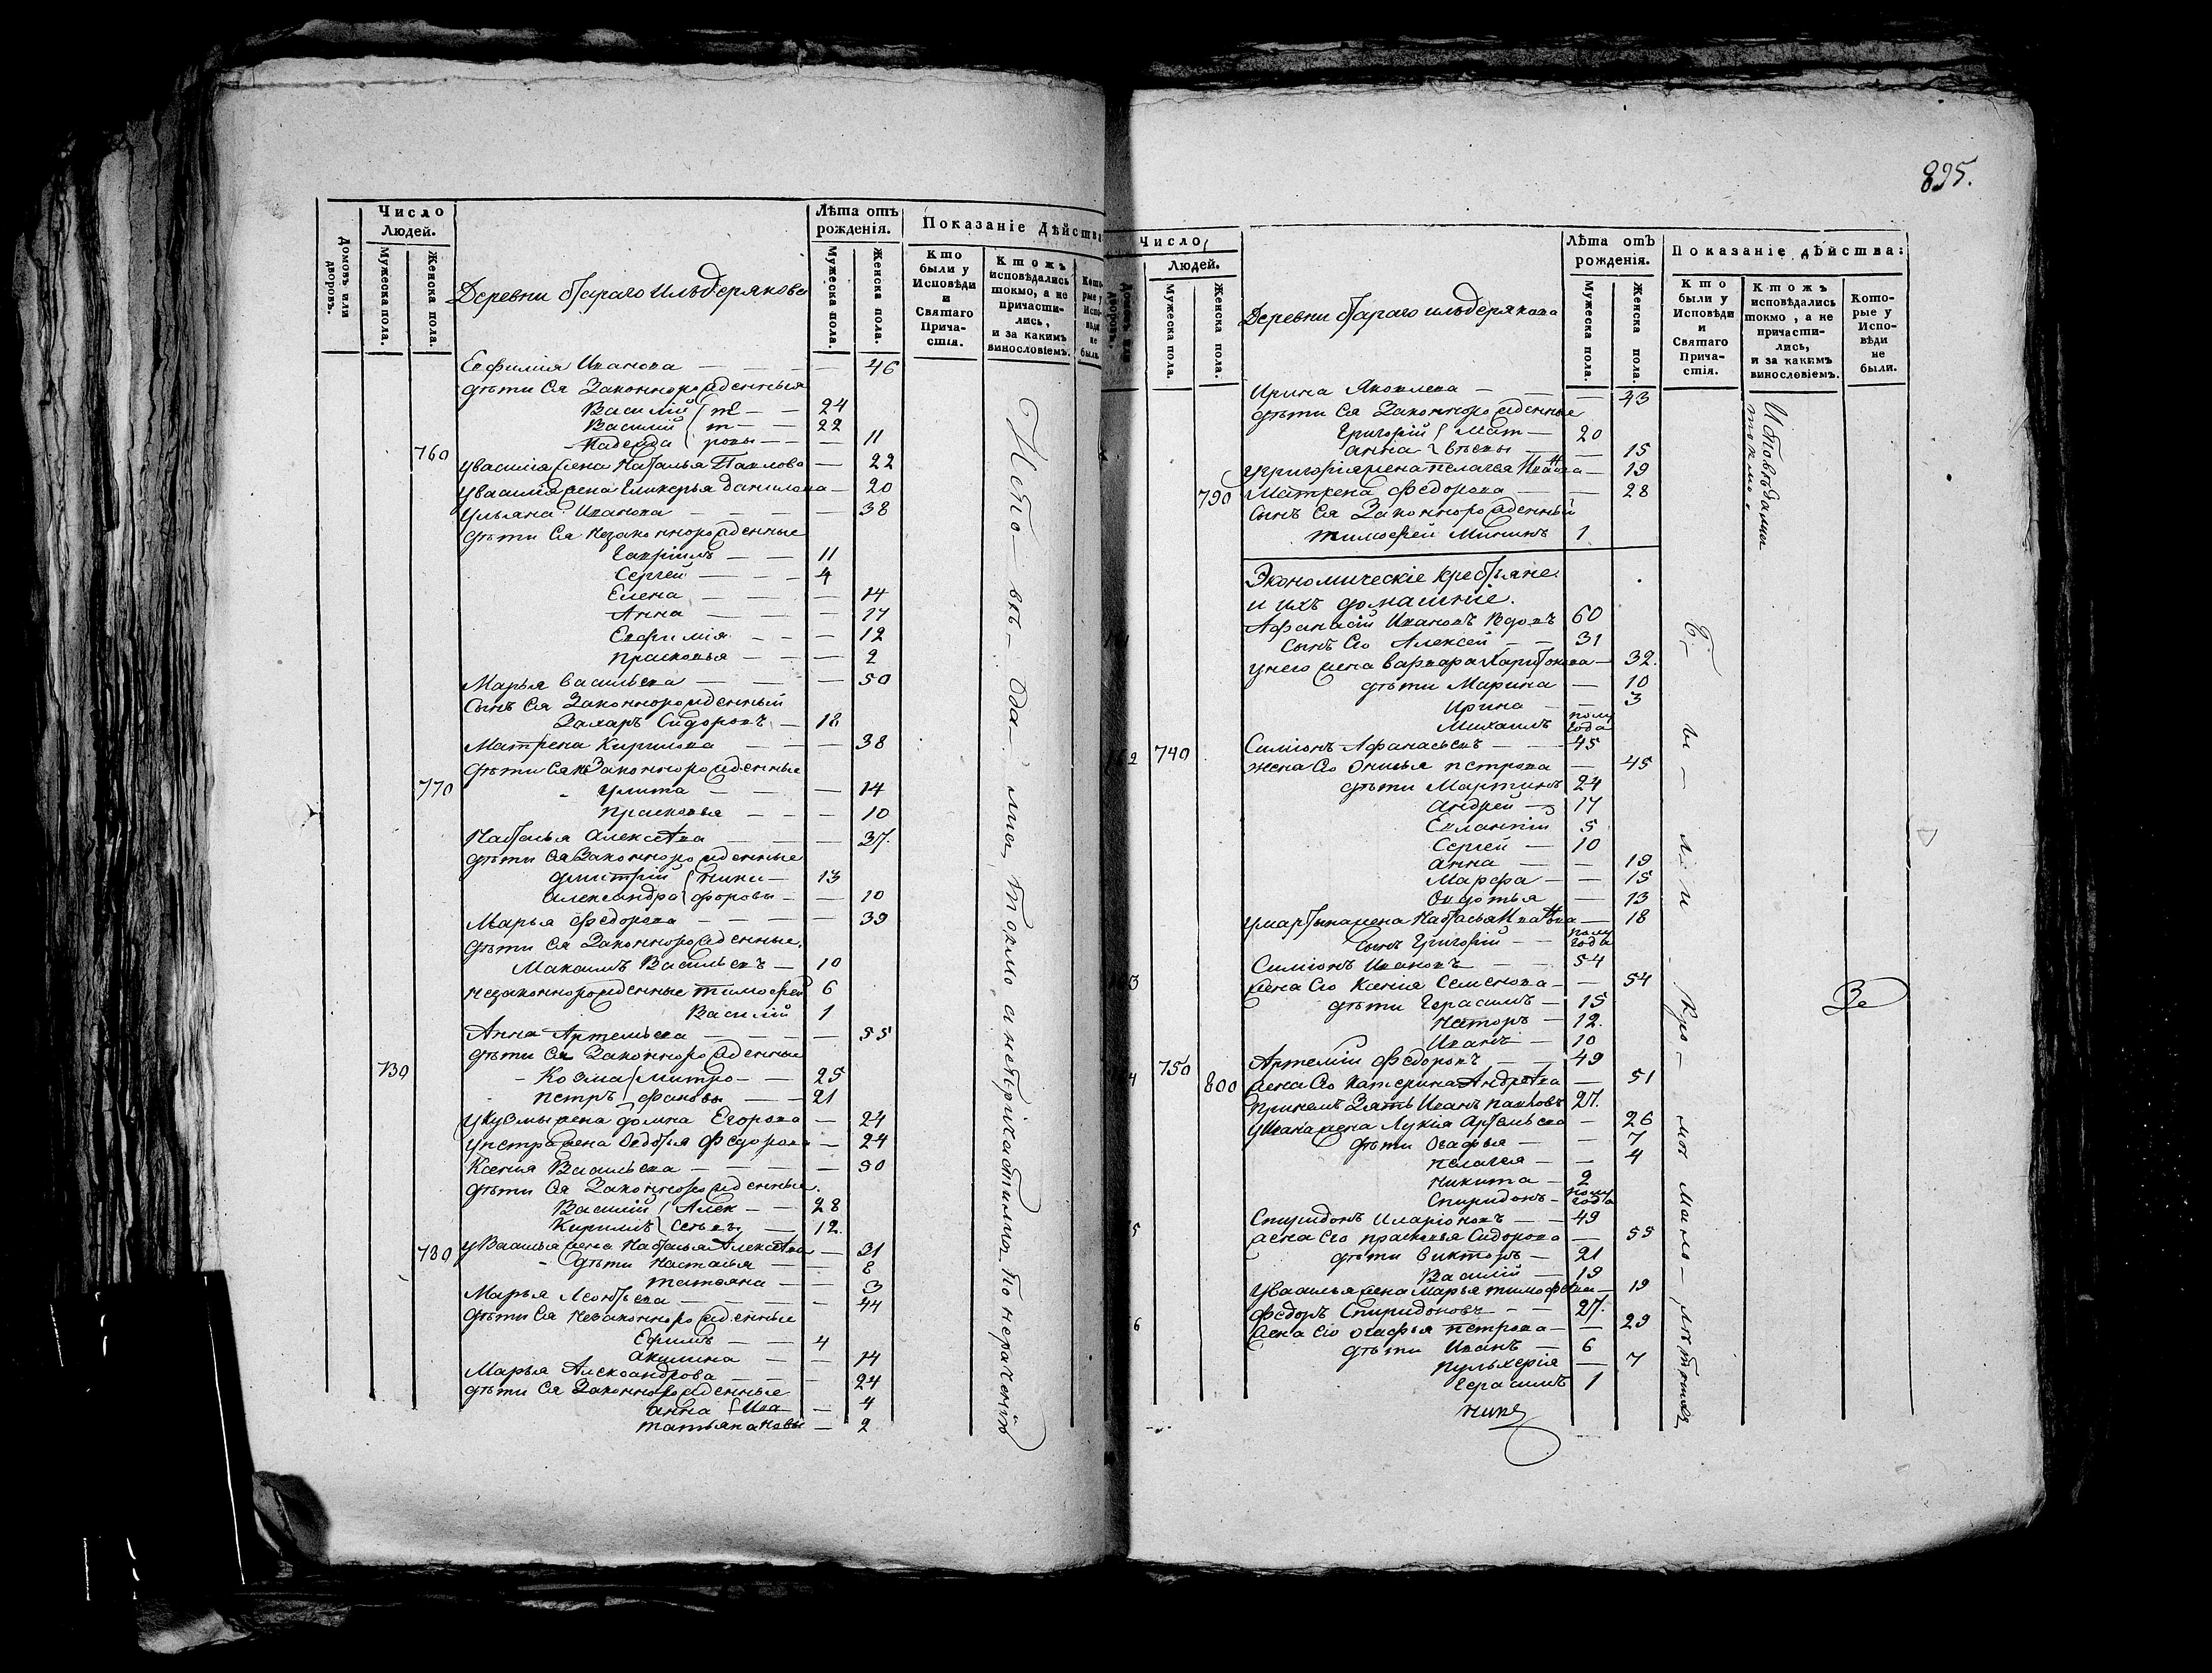 Число
Людей.
Домовъ или дворовъ.
Мужеска пола.
Женска пола.
Деревни Стараго Ильдерякова
Лѣта отъ
рожденія.
Мужеска пола.
Женска пола.
Показаніе Дѣйства
Кто были у Исповѣди и Святаго Прича-стія.
Ктожъ исповѣдались токмо, а не причасти-лись, и за какимъ винословіемъ.
Кото-рые у Испо-вѣди не были
Евфимія Иванова — 46
дѣти Ея Законнорожденныя
Василій — 24
Василий — 22
Надежда — 11
760
у василія жена Наталья Павлова — 22
у василія жена Гликерья данилова — 20
Ульяна Иванова — 38
дѣти Ея Незаконнорожденные
Гавріилъ — 11
Сергей — 4
Елена — 14
Анна — 17
Евфимія — 12
Прасковья — 2
Марья васильева — 50
Сынъ Ея Законнорожденный
Захаръ Сидоровъ — 18
Матрена Кирилова — 38
дѣти Ея Законнорожденные
770
Улита — 14
Прасковья — 10
Наталья Алексѣева — 37.
дѣти Ея Законнорожденные
дмитрій Ники — 13
Александра форовы — 10
Марья федорова — 39
дѣти Ея Законнорожденные.
Максимъ Васильевъ — 10
незаконнорожденные тимофей 6
Василій 1
Анна Артемьева — 55
дѣти Ея Законнорожденные
730
Козма Митро — 25
Петръ фановы — 21
у Кузмы жена домна Егорова — 24
у петра жена Федосья Федорова — 24
Ксенья Васильева — 50
дѣти Ея Законнорожденные.
Василій Алек — 28
Кирилъ сѣевы — 12.
780
у Василья жена Наталья Алексѣева — 31
дѣти Настасья — 8
татьяна — 3
Марья Леонтьева — 44
дѣти Ея Незаконнорожденные
Ефимъ — 4
акилина — 14
Марья Александрова — 24
дѣти Ея Законнорожденные
анна Ива — 4
татьяна новы — 2
895.
Число
Людей.
Мужеска пола.
Женска пола.
Деревни Стараго ильдерякова
Лѣта отъ
рожденія.
Мужеска пола.
Женска пола.
Показаніе дѣйства:
Кто были у Исповѣди и Святаго Прича-стія.
Ктожъ исповѣдались токмо, а не причасти-лись, и за какимъ винословіемъ.
Кото-рые у Испо-вѣди не были.
Ирина Яковлева — 43
дѣти Ея Законнорожденные
Григорій Мат — 20
анна вѣевы — 15
у григорія жена пелагея Иванова — 19
790
Матрена федорова — 28
Сынъ Ея Законнорожденный
тимофей Мининъ 1
Экономическіе крестьяне
и ихъ домашніе.
Афанасій Ивановъ вдовъ 60
сынъ Его Алексей — 31
у него жена варвара Харитонова — 32.
дѣти Марина — 10
Ирина — 3
Михаилъ полу года
740
Симіонъ Афанасьевъ — 45
жена Его Онисья петрова — 45
дѣти Мартинъ 24
Андрей 17
Евлампій 5
Сергей — 10
анна — 19
Марфа — 15
Овдотья — 13
у мартына жена Наталья Иванова — 18
сынъ Григорій — полу года
Симіонъ Ивановъ — 54
жена Его Ксенія Семенова — 54
дѣти Герасимъ — 15
12.
Иванъ — 10
750
Артемій Федоровъ — 49
800
жена Его Катерина Андреева — 51
Зять Иванъ павловъ 27.
у Ивана жена Лукия Артемьева — 26
дѣти Огафья — 7
пелагея — 4
никита — 2
Спиридонъ — полу года
Спиридонъ Иларіоновъ — 49
жена Его прасковья Сидорова — 55
дѣти викторъ — 21
Василій — 19
у Василья жена Марья тимофеева — 19
Федоръ Спиридоновъ — 27.
жена Его огафья петрова — 29
дѣти Иванъ — 6
пульхерія — 7
Герасимъ 1
Исповѣдались токмо,
Бы-ли кро-мѣ мало-лѣтныхъ